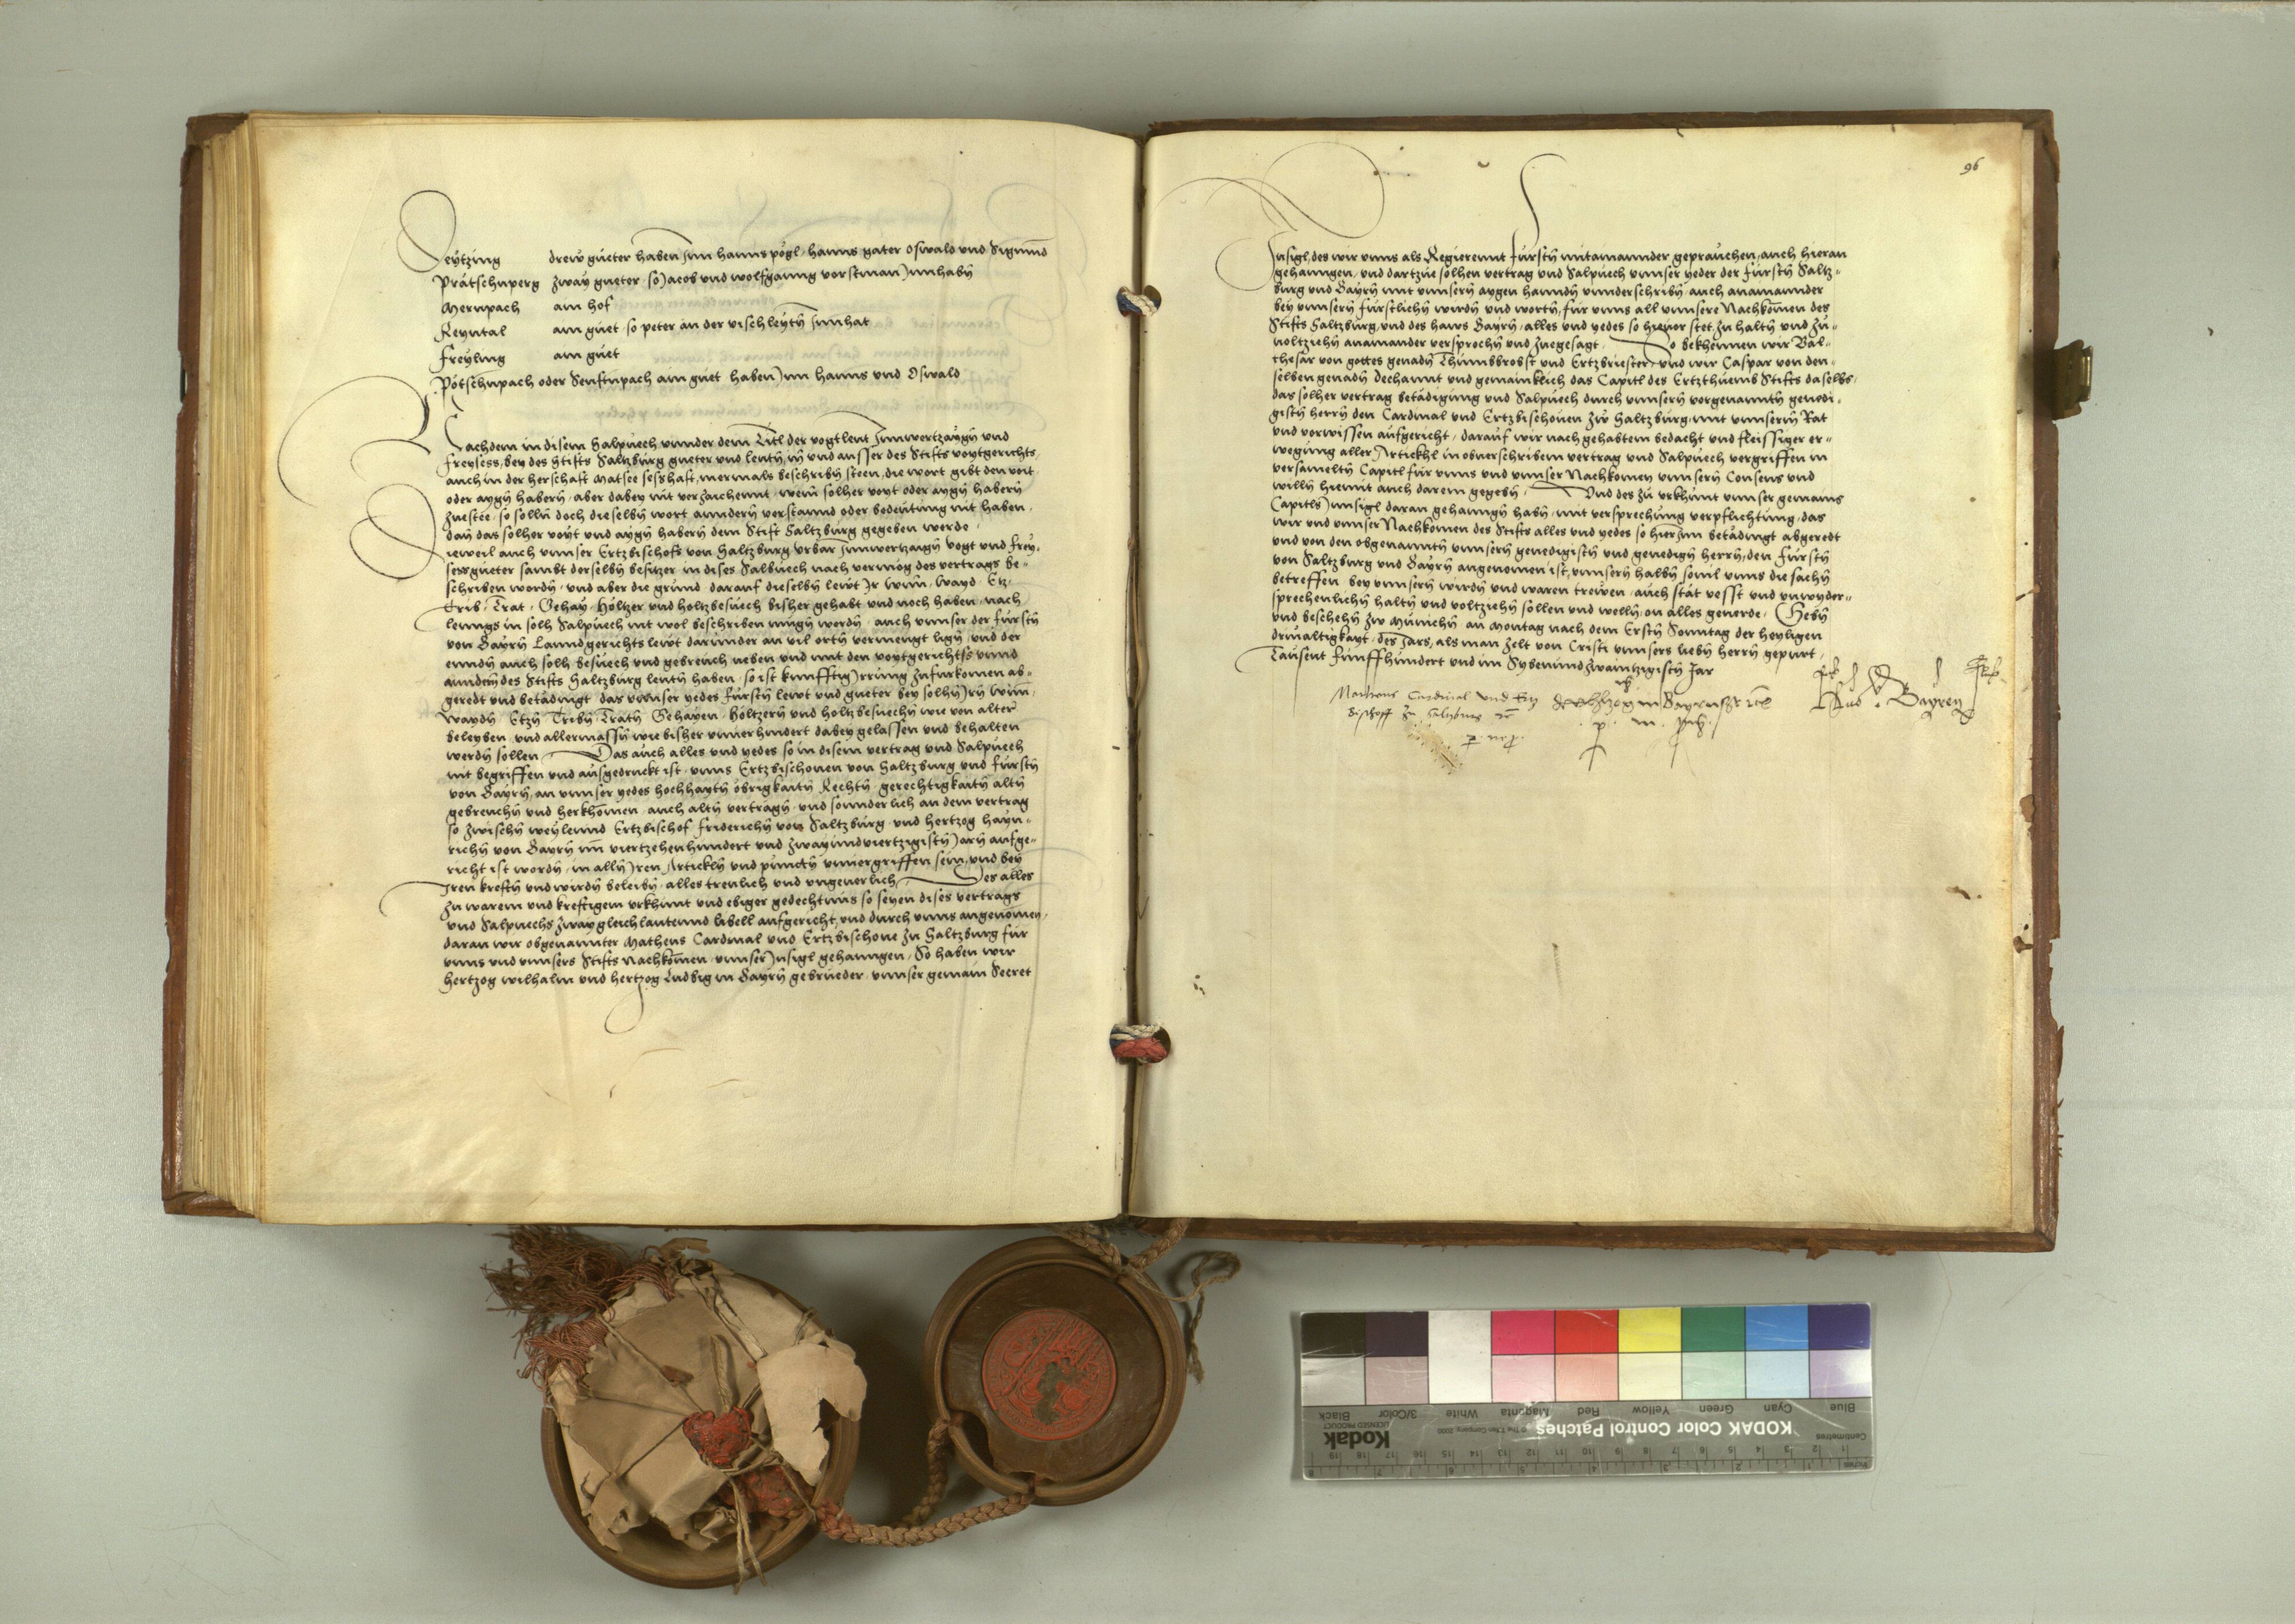 Deytzing drew güeter haben Inn hanns pögl, hanns gater Oswald und Sigmund
Prätschnperg zway güeter so Jacob und wolfganng vorstman Innhaben
Mernpach ain hof
Reyntal ain güet so peter an der vischleyten Innhat
Freyling ain güet
Pötschnpach oder Senftnpach ain güet haben Inn hanns und Oswald
Nachdem in disem Salpuech unnder dem Titl der vogtleut Innwertzaygen und
freysess, bey des Stifts Saltzburg gueter und leuten, in und ausser des Stifts voytgerichts,
auch in der herschaft Matsee sesshaft, mermals beschriben steen, die wort gibt den voit
oder aygen habern, aber dabey nit verzaichennt, wem solher voyt oder aygen habern
zuestee, so sollen doch dieselben wort annderen verstannd oder bedeutung nit haben,
dan das solher voyt und aygen habern dem Stift Saltzburg gegeben werde.
Dieweil auch unnser Ertzbischofs von Saltzburg Urbar Innwertzaigen vogt und frey,
sessgueter sambt derselben besitzer in dises Salbuech nach vermog des vertrags be-
schriben worden, und aber die grund darauf dieselben lewt Ir Wun, Wayd, Etz,
Trib, Trat, Gehay, Höltzer und holtzbesuech bisher gehabt und noch haben, nach
lenngs in solh Salpuech nit wol beschriben mugen werden, auch unnser der fürsten
von Bayrn Lanndgerichts lewt darunder an vil orten vermengt ligen, und der
ennden auch solh besuech und gebreuch neben und mit den voytgerichts unnd
anndern des Stifts Saltzburg leuten haben, so ist kunfftig Irrung zufurkomen ab-
geredt und betädingt, das unnser yedes fürsten lewt und gueter bey solhen Iren Wun,
Wayden, Etzen, Triben, Traten, Gehayen, Höltzern und holtzbesuechen wie von alter
beleyben, und allermassen wie bisher unverhindert dabey gelassen und behalten
werden sollen. Das auch alles und yedes so in disem vertrag und Salpuech
nit begriffen und ausgedruckt ist, unns Ertzbischoven von Saltzburg und fürsten
von Bayrn, an unnser yedes hochhayten, obrigkaiten, Rechten, gerechtigkaiten, alten
gebreuchen und herkhomen, auch alten verträgen, und sonnderlich an dem vertrag
so zwischen weylennd Ertzbischof friderichen von Saltzburg und hertzog hayn-
richen von Bayrn im viertzehenhundert und zwayundviertzigisten Jarn aufge-
richt ist worden, in allen Iren Artickln und puncten unvergriffen sein, und bey
Iren kreften und wirden beleiben, alles treulich und ungeverlich. Des alles
zu warem und kreftigem urkhunt und ebiger gedechtnus so seyen dises vertrags
und Salpuechs zway gleichlautennd libell aufgericht, und durch unns angenomen,
daran wir obgenannter Matheus Cardinal und Ertzbischove zu Saltzburg für
unns und unnsers Stifts nachkomen unnser Insigl gehanngen. So haben wir
hertzog wilhalm und hertzog Ludbig in Bayrn gebrueder unnser gemain Secret
96
Insigl, des wir unns als Regierennt fürsten mitainannder gepraüchen, auch hieran
gehanngen, und dartzue solhen vertrag und Salpuech unnser yeder der fürsten Saltz-
burg und Bayrn mit unnsern aygen hannden unnderschriben, auch anainannder
bey unnsern fürstlichen wirden und worten, für unns all unnsere Nachkomen des
Stifts Saltzburg, und des haws Bayrn, alles und yedes so hievor stet, zu halten und zu-
voltziehen anainander versprochen und zuegesagt. So bekhennen wir Bal-
thesar von gottes genaden Thumbbrobst und Ertzbriester, und wir Caspar von den-
selben genaden dechannt und gemainklich das Capitl des Ertzthuembs Stifts daselbs,
das solher vertrag betädigung und Salpuech durch unnsern vorgenannten genedi-
gisten herrn den Cardinal und Ertzbischoven zu Saltzburg, mit unnserm Rat
und vorwissen aufgericht, darauf wir nach gehabtem bedacht und fleissiger er-
wegung aller Artickhl in obverschribem vertrag und Salpuech vergriffen in
versamelten Capitl für unns und unnser Nachkomen unnsern Consens und
willen hiemit auch darein gegeben. Und des zu urkhunt unnser gemains
Capitls Innsigl daran gehanngen haben, mit versprechung verpflichtung, das
wir und unnser Nachkomen des Stifts alles und yedes so hierInn betädingt abgeredt
und von den obgenannten unnsern genedigisten und genedigen herrn, den fürsten
von Saltzburg und Bayrn angenomen ist, unnsern halben sovil unns die sachen
betreffen bey unnsern wirden und waren trewen, auch stät vesst und unwyder-
sprechenlichen halten und voltziehen sollen und wellen, on alles geverde. Geben
und beschehen zw Munchen an Montag nach dem Ersten Sonntag der heyligen
drivaltigkayt, des Jars, als man zelt von Cristi unnsers lieben herrn gepurt,
Tausent funffhundert und im Sybenundzwaintzigisten Jar
Matheus Cardinal und Ertz
Bischoff zu Saltzburg
Bayrn
Bayren
Kodak
LICENSED PRODUCT
KODAK Color Control Patches
© The Tiffen Company, 2000
Blue Cyan Green Yellow Red Magenta White 3/Color Black
Centimetres
1 2 3 4 5 6 7 8 9 10 11 12 13 14 15 16 17 18 19
Inches
1 2 3 4 5 6 7 8